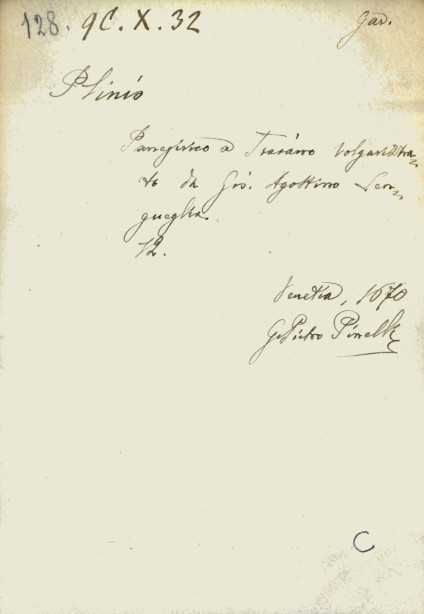 128. 9C. X. 32 Gad.
Plinio
Panegirico a Traiano volgarizza
to da Gio. Agostino Len
gueglia.
12.
Venetia, 1670
G. Pietro Pinelli
C